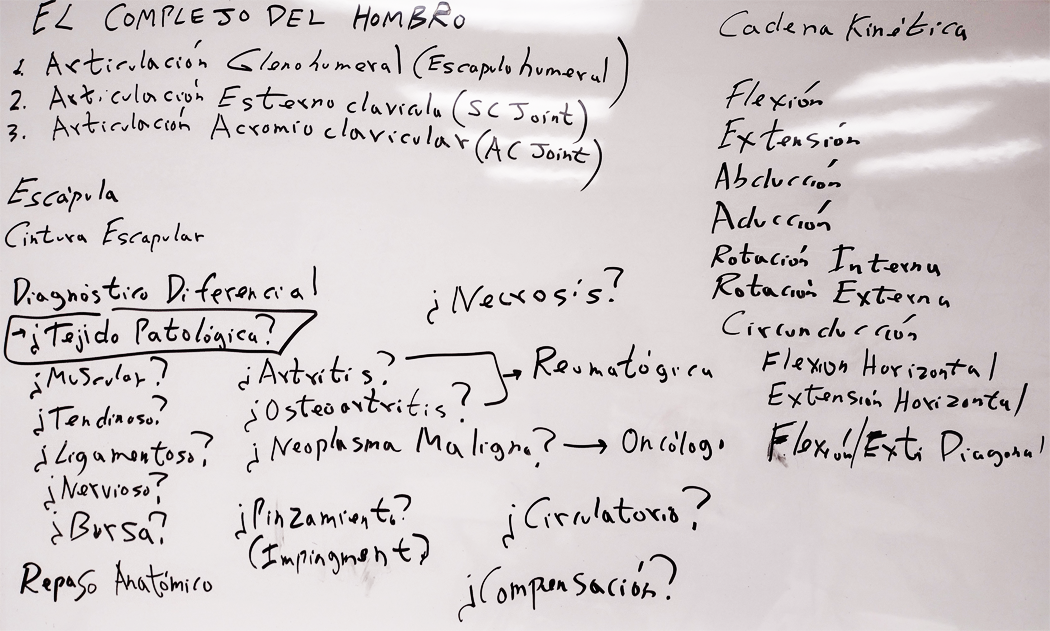 EL COMPLEJO DEL HOMBRO
1. Articulación Glenohumeral (Escapulohumeral)
2. Articulación Esternoclavicula (SC Joint)
3. Articulación Acromioclavicular (AC Joint)
Escápula
Cintura Escapular
Diagnóstico Diferencial
→ ¿Tejido Patológica?
¿Muscular?
¿Tendinoso?
¿Ligamentoso?
¿Nervioso?
¿Bursa?
Repaso Anatómico
¿Necrosis?
¿Artritis?
¿Osteoartritis?
→ Reumatógica
¿Neoplasma Maligno? → Oncólogo
¿Pinzamiento?
(Impingment)
¿Circulatorio?
¿Compensación?
Cadena Kinética
Flexión
Extensión
Abducción
Aducción
Rotación Interna
Rotación Externa
Circunducción
Flexion Horizontal
Extensión Horizontal
Flexión/Ext. Diagonal